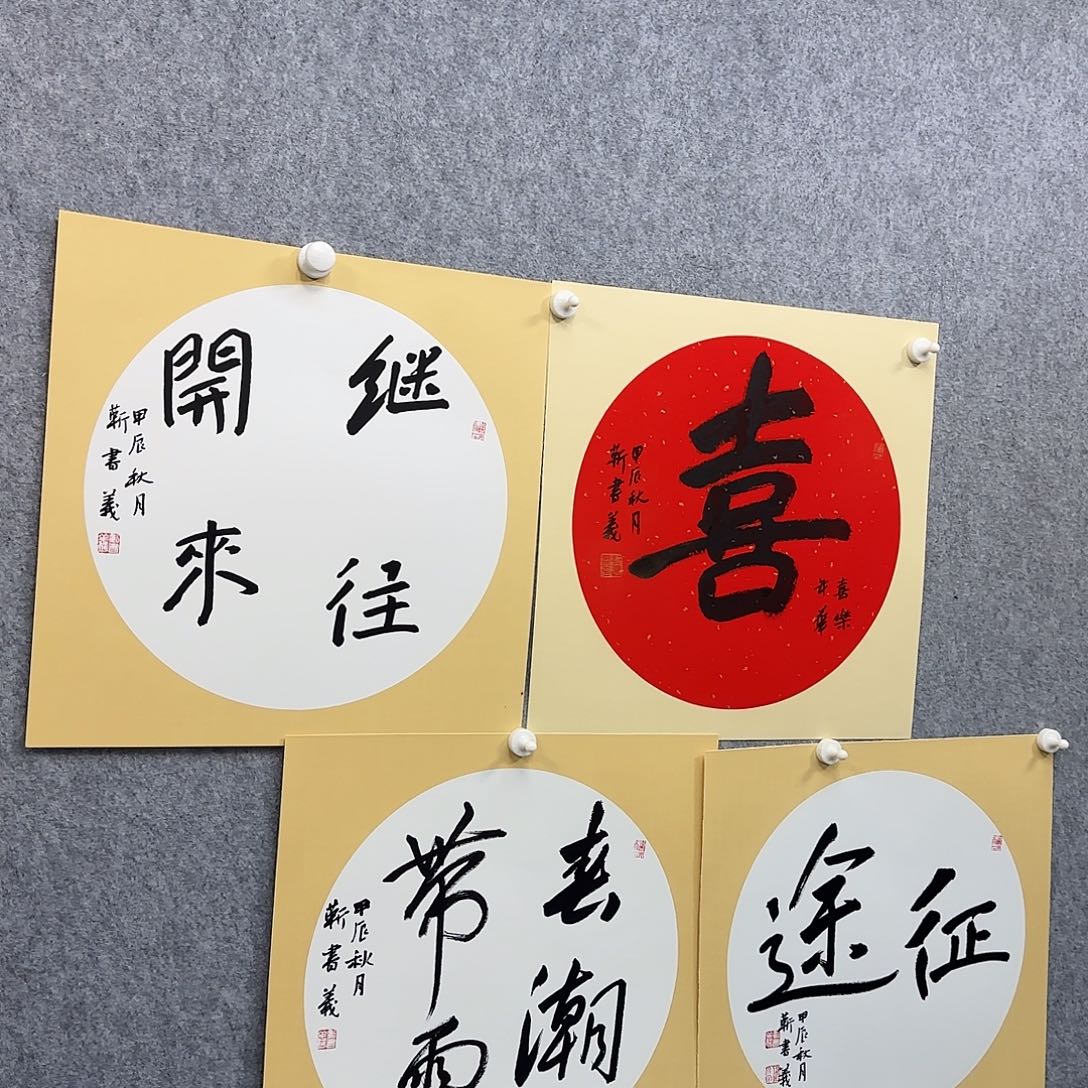 继往
開來
甲辰秋月
靳書義
喜
喜樂
年華
甲辰秋月
靳書義
春潮
帶雨
甲辰秋月
靳書義
征途
甲辰秋月
靳書義